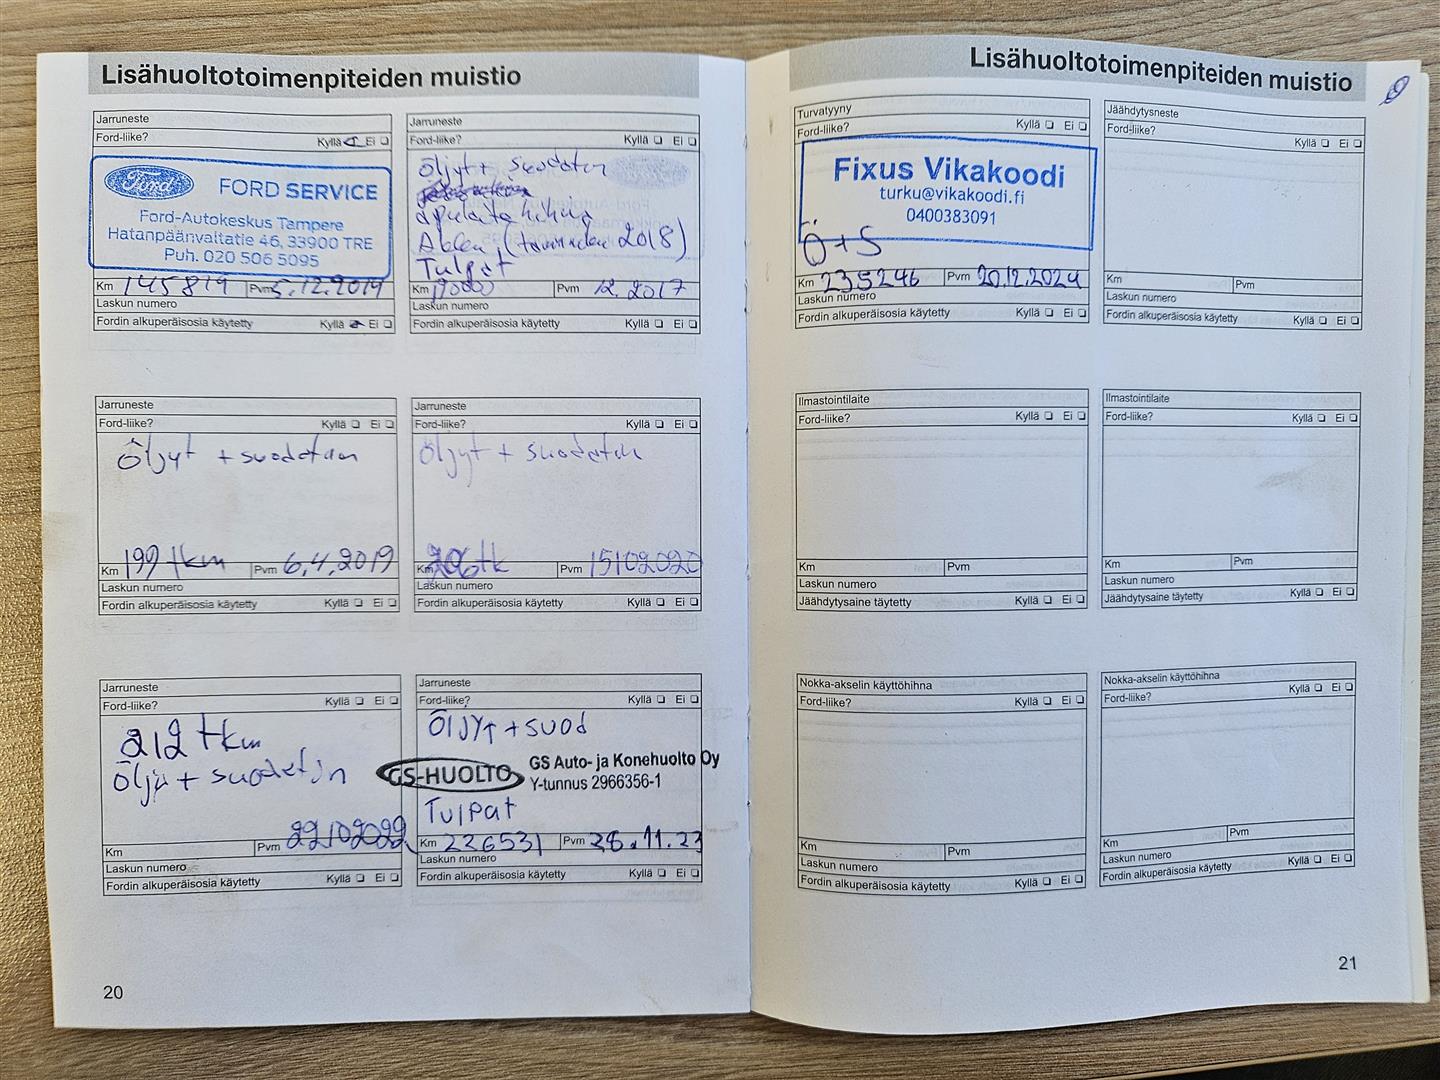 Lisähuoltotoimenpiteiden muistio
Jarruneste
Ford-liike? Kyllä Ei
Ford
FORD SERVICE
Ford-Autokeskus Tampere
Hatanpäänvaltatie 46, 33900 TRE
Puh. 020 506 5095
Km 145819 Pvm 5.12.2014
Laskun numero
Fordin alkuperäisosia käytetty Kyllä Ei
Jarruneste
Ford-liike? Kyllä Ei
Öljyt + suodatin
apulaitehihna
(tammikuu 2018)
Tulpat
Km 190000 Pvm 12.2017
Laskun numero
Fordin alkuperäisosia käytetty Kyllä Ei
Jarruneste
Ford-liike? Kyllä Ei
Öljyt + suodatin
Km 199 tkm Pvm 6.4.2019
Laskun numero
Fordin alkuperäisosia käytetty Kyllä Ei
Jarruneste
Ford-liike? Kyllä Ei
Öljyt + suodatin
Km 206tk Pvm 15102020
Laskun numero
Fordin alkuperäisosia käytetty Kyllä Ei
Jarruneste
Ford-liike? Kyllä Ei
212 tkm
Öljy + suodatin
Km Pvm 22102022
Laskun numero
Fordin alkuperäisosia käytetty Kyllä Ei
Jarruneste
Ford-liike? Kyllä Ei
ÖljyT + suod
GS-HUOLTO
GS Auto- ja Konehuolto Oy
Y-tunnus 2966356-1
Tulpat
Km 226531 Pvm 28.11.23
Laskun numero
Fordin alkuperäisosia käytetty Kyllä Ei
20
Lisähuoltotoimenpiteiden muistio
Turvatyyny
Ford-liike? Kyllä Ei
Fixus Vikakoodi
turku@vikakoodi.fi
0400383091
Ö+S
Km 235246 Pvm 20.12.2024
Laskun numero
Fordin alkuperäisosia käytetty Kyllä Ei
Jäähdytysneste
Ford-liike? Kyllä Ei
Km Pvm
Laskun numero
Fordin alkuperäisosia käytetty Kyllä Ei
Ilmastointilaite
Ford-liike? Kyllä Ei
Km Pvm
Laskun numero
Jäähdytysaine täytetty Kyllä Ei
Ilmastointilaite
Ford-liike? Kyllä Ei
Km Pvm
Laskun numero
Jäähdytysaine täytetty Kyllä Ei
Nokka-akselin käyttöhihna
Ford-liike? Kyllä Ei
Km Pvm
Laskun numero
Fordin alkuperäisosia käytetty Kyllä Ei
Nokka-akselin käyttöhihna
Ford-liike? Kyllä Ei
Km Pvm
Laskun numero
Fordin alkuperäisosia käytetty Kyllä Ei
21